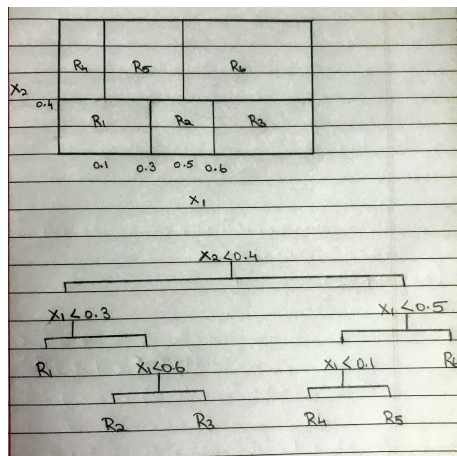 R4 R5 R6
X2
0.4
R1 R2 R3
0.1 0.3 0.5 0.6
X1
X2<0.4
X1<0.3 X1<0.5
R1 X1<0.6 X1<0.1 R6
R2 R3 R4 R5